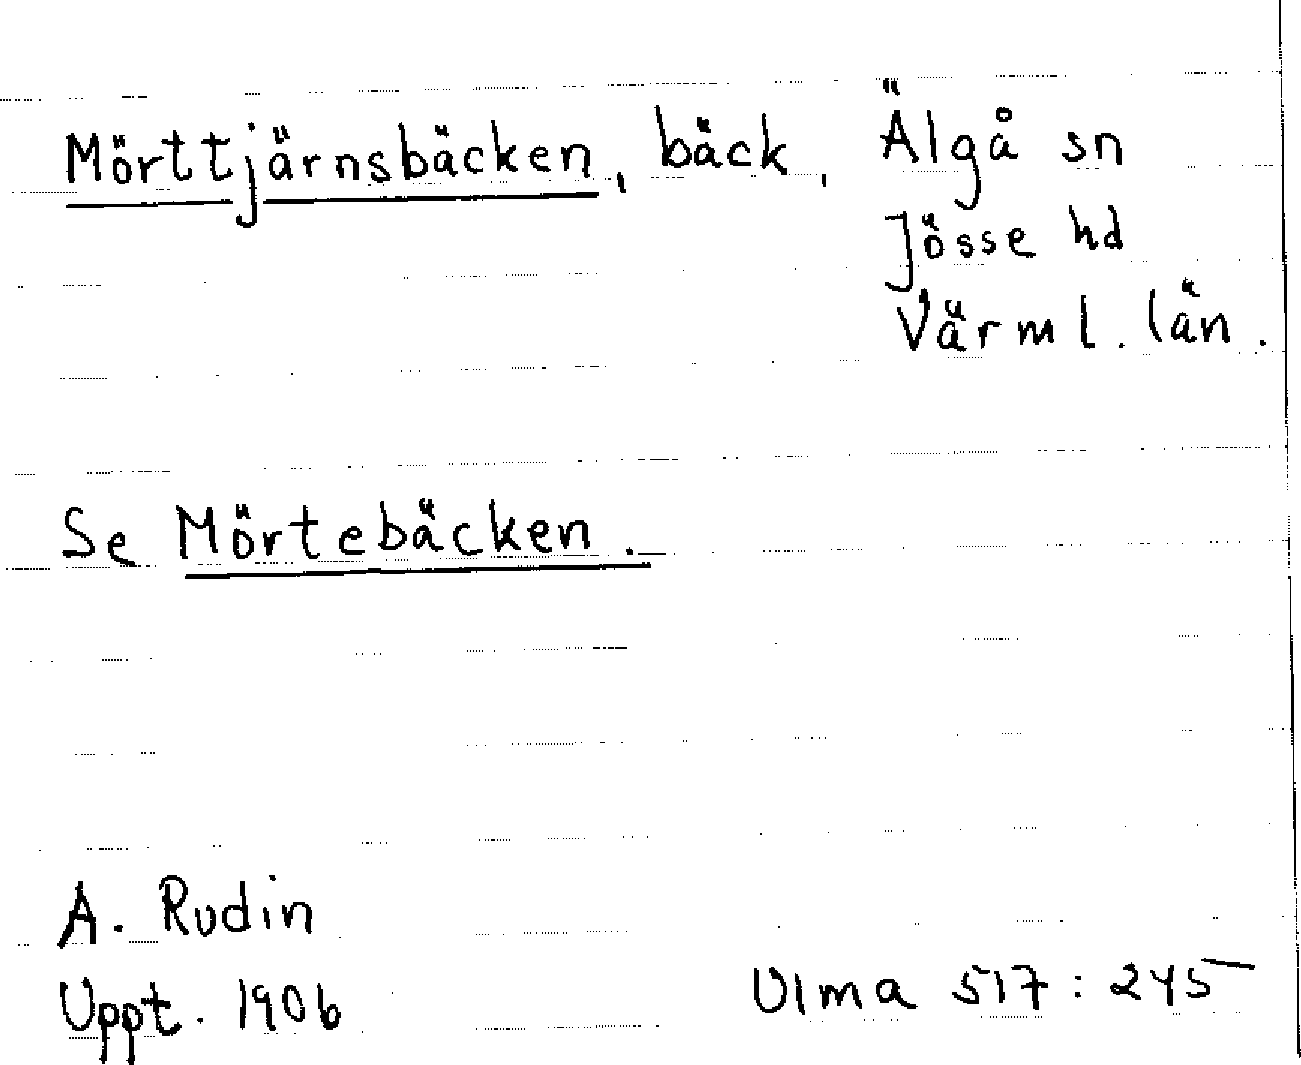 Mörttjärnsbäcken, bäck, Älgå sn
Jösse hd
Värml. län.
Se Mörtebäcken.
A. Rudin
Uppt. 1906
Ulma 517:245